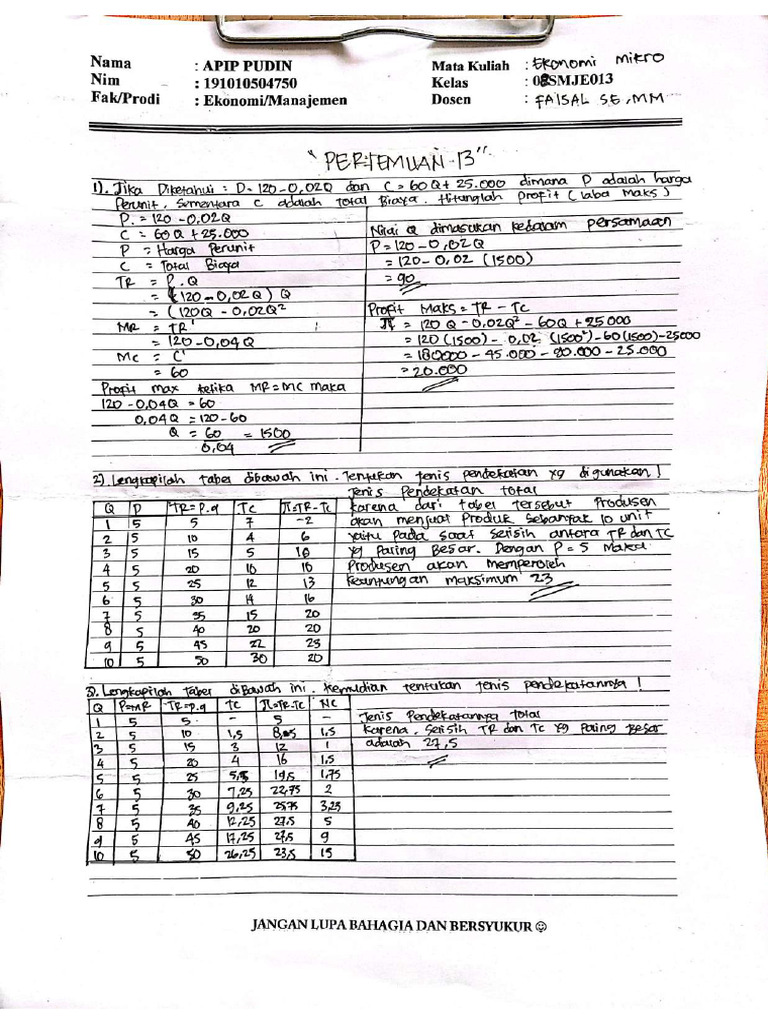 Nama : APIP PUDIN Mata Kuliah : EKONOMI MIKRO
Nim : 191010504750 Kelas : 08SMJE013
Fak/Prodi : Ekonomi/Manajemen Dosen : FAISAL SE, MM
"PERTEMUAN-13"
1). Jika Diketahui : D = 120 - 0,02Q dan C = 60Q + 25.000 dimana P adalah harga
Perunit. Sementara C adalah Total Biaya. Hitunglah Profit (laba Maks)
P. = 120 - 0,02Q
C = 60Q + 25.000
P = Harga Perunit
C = Total Biaya
TR = P.Q
= (120 - 0,02Q) Q
= (120Q - 0,02Q²
MR = TR'
= 120 - 0,04Q
MC = C'
= 60
Profit max ketika MR = MC maka
120 - 0,04Q = 60
0,04Q = 120 - 60
Q = 60 = 1500
0,04
Nilai Q dimasukan kedalam persamaan
P = 120 - 0,02Q
= 120 - 0,02 (1500)
= 90
Profit Maks = TR - TC
π = 120Q - 0,02Q² - 60Q + 25000
= 120 (1500) - 0,02 (1500²) - 60 (1500) - 25000
= 180000 - 45.000 - 90.000 - 25.000
= 20.000
2). Lengkapilah tabel dibawah ini. Tentukan jenis pendekatan yg digunakan!
Q P TR=P.q TC π=TR-TC
1 5 5 7 -2
2 5 10 4 6
3 5 15 5 10
4 5 20 10 10
5 5 25 12 13
6 5 30 14 16
7 5 35 15 20
8 5 40 20 20
9 5 45 22 23
10 5 50 30 20
Jenis Pendekatan total
karena dari tabel tersebut Produsen
akan menjual Produk sebanyak 10 unit
yaitu pada saat selisih antara TR dan TC
yg Paring Besar. Dengan P = 5 Maka
Produsen akan memperoleh
keuntungan maksimum 23
3). Lengkapilah tabel dibawah ini. Kemudian tentukan jenis pendekatannya!
Q P=MR TR=P.q TC π=TR-TC MC
1 5 5 - 5 -
2 5 10 1,5 8,5 1,5
3 5 15 3 12 1
4 5 20 4 16 1,5
5 5 25 5,5 19,5 1,75
6 5 30 7,25 22,75 2
7 5 35 9,25 25,75 3,25
8 5 40 12,25 27,5 5
9 5 45 17,25 27,5 9
10 5 50 26,25 23,5 15
Jenis Pendekatannya total
karena selisih TR dan TC yg Paring Besar
adalah 27,5
JANGAN LUPA BAHAGIA DAN BERSYUKUR ☺